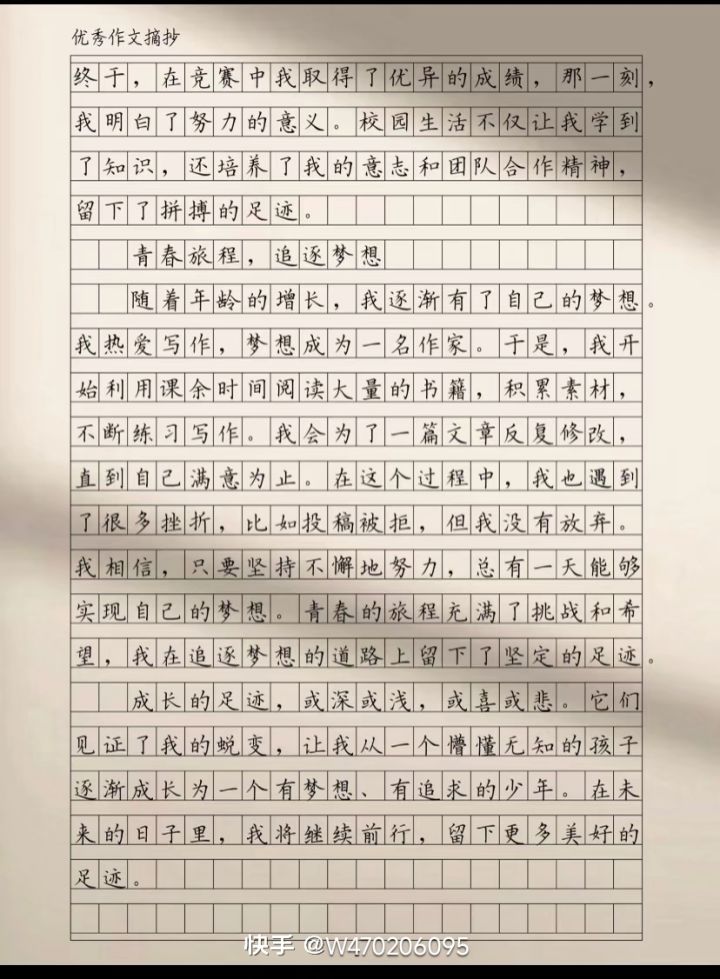 优秀作文摘抄
终于，在竞赛中我取得了优异的成绩，那一刻，
我明白了努力的意义。校园生活不仅让我学到
了知识，还培养了我的意志和团队合作精神，
留下了拼搏的足迹。
青春旅程，追逐梦想
随着年龄的增长，我逐渐有了自己的梦想。
我热爱写作，梦想成为一名作家。于是，我开
始利用课余时间阅读大量的书籍，积累素材，
不断练习写作。我会为了一篇文章反复修改，
直到自己满意为止。在这个过程中，我也遇到
了很多挫折，比如投稿被拒，但我没有放弃。
我相信，只要坚持不懈地努力，总有一天能够
实现自己的梦想。青春的旅程充满了挑战和希
望，我在追逐梦想的道路上留下了坚定的足迹。
成长的足迹，或深或浅，或喜或悲。它们
见证了我的蜕变，让我从一个懵懂无知的孩子
逐渐成长为一个有梦想、有追求的少年。在未
来的日子里，我将继续前行，留下更多美好的
足迹。
快手 @W470206095